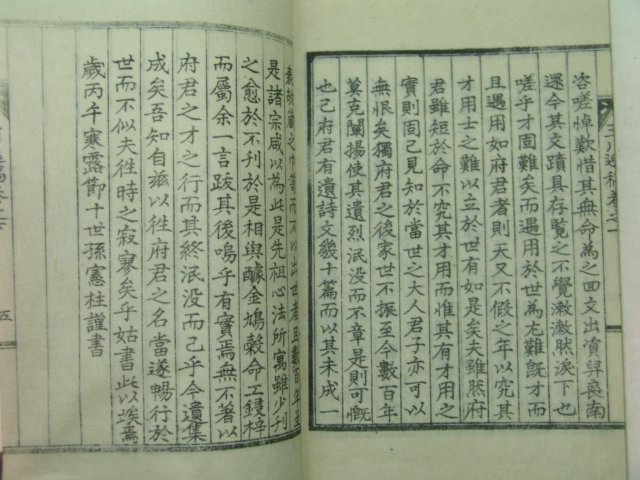 咨嗟悼歎惜其無命為之回文出資舁櫬南
還今其文蹟具存覽之不覺潄潄然淚下也
嗟乎才固難矣而遇用於世為尤難旣才而
且遇用如府君者則天又不假之年以究其
才用士之難以立於世有如是矣夫雖然府
君雖短於命不究其才用而惟其有才用之
實則固已見知於當世之大人君子亦可以
無恨矣獨府君之後家世不振至今數百年
莫克闡揚使其遺烈泯没而不章是則可慨
也已府君有遺詩文幾十篇而以其未成一
藏之巾笥而不以出世者且數百年至
是諸宗咸以為此是先祖心法所寓雖少刊
之愈於不刊於是相與醵金鳩穀命工鋟梓
而屬余一言跋其後嗚乎有實焉無不著以
府君之才之行而其終泯没而已乎今遺集
成矣吾知自兹以徃府君之名當遂暢行於
世而不似夫徃時之寂寥矣乎姑書此以竢焉
歲丙午寒露節十世孫憲柱謹書
五